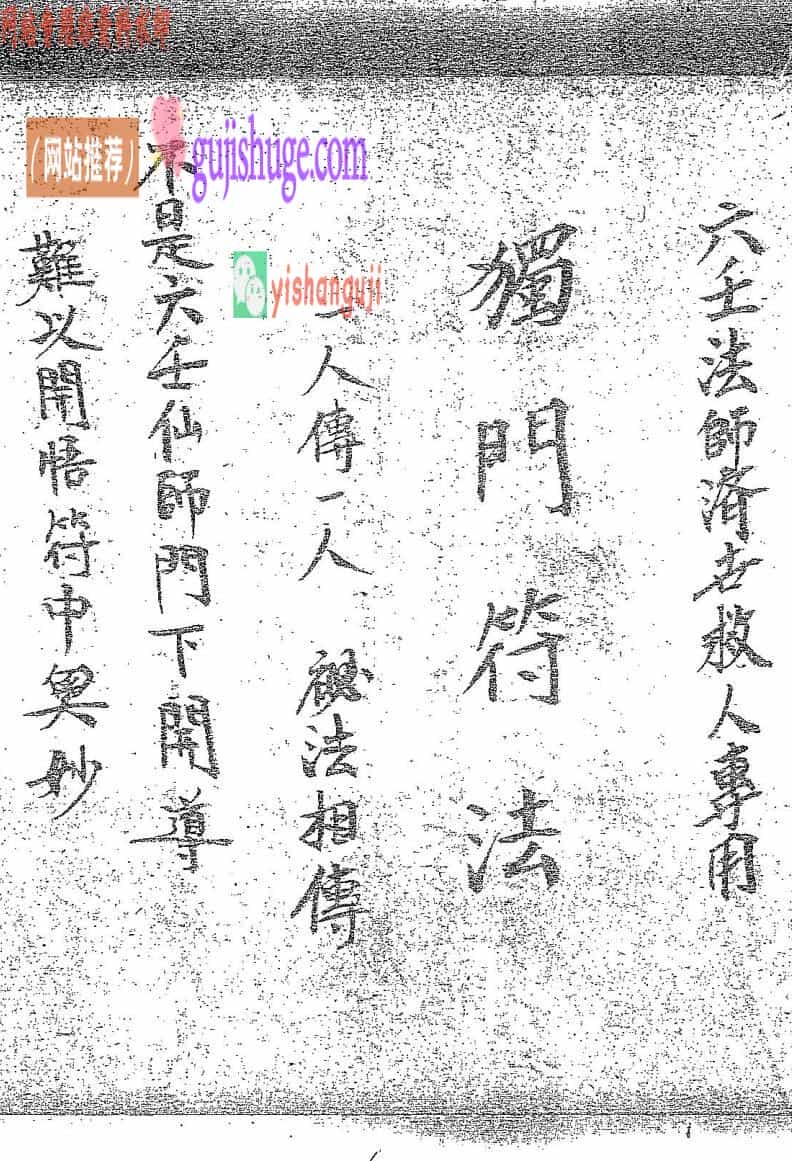 六壬法師済世救人專用
獨門符法
一人傳一人秘法相傳
不是六壬仙師門下開導
難以開悟符中奧妙
(网站推荐)
gujishuge.com
yishanguji